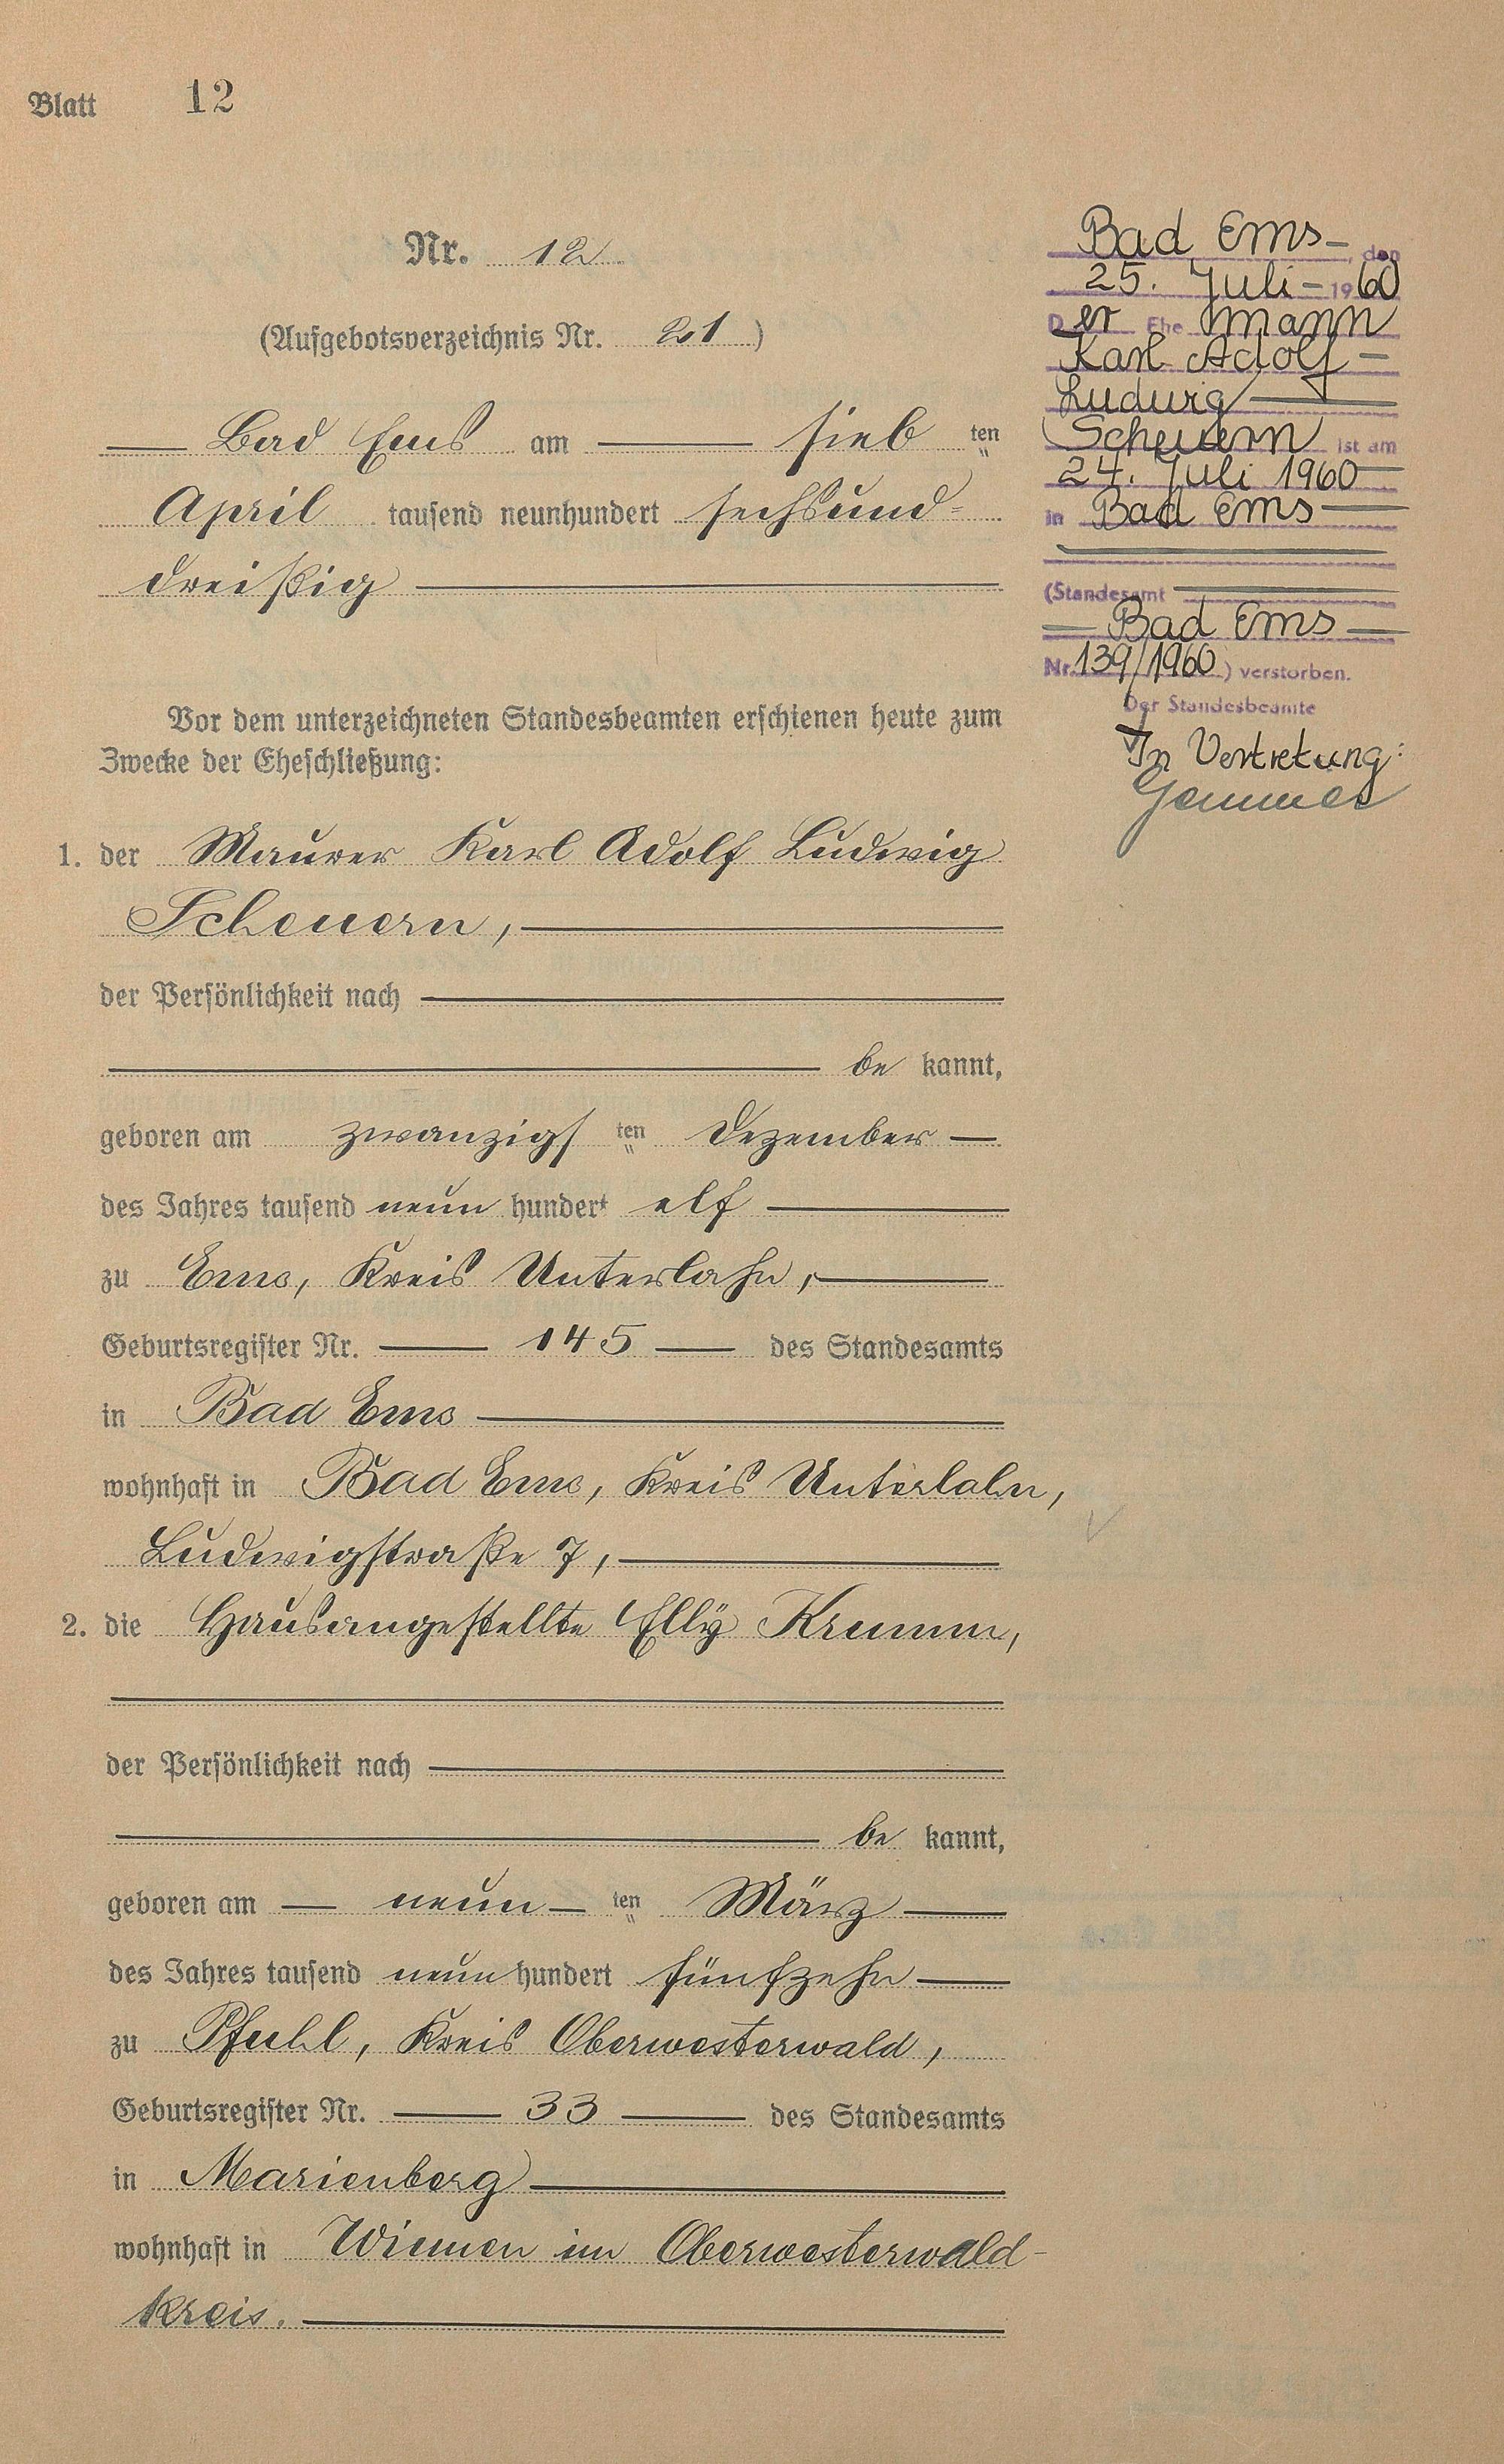 Blatt 12
Nr. 12
(Aufgebotsverzeichnis Nr. 21)
Bad Ems am sieb ten
April tausend neunhundert sechsund=
dreißig
Vor dem unterzeichneten Standesbeamten erschienen heute zum
Zwecke der Eheschließung:
1. der Maurer Karl Adolf Ludwig
Scheuern,
der Persönlichkeit nach
be kannt,
geboren am zwanzigs ten Dezember
des Jahres tausend neun hundert elf
zu Ems, Kreis Unterlahn,
Geburtsregister Nr. 145 des Standesamts
in Bad Ems
wohnhaft in Bad Ems, Kreis Unterlahn,
Ludwigstraße 7,
2. die Hausangestellte Elly Krumm,
der Persönlichkeit nach
be kannt,
geboren am neun ten März
des Jahres tausend neun hundert fünfzehn
zu Pfuhl, Kreis Oberwesterwald,
Geburtsregister Nr. 33 des Standesamts
in Marienberg
wohnhaft in Winnen im Oberwesterwald-
kreis.
Bad Ems, den
25. Juli 1960
Der Ehemann
Karl Adolf
Ludwig
Scheuern ist am
24. Juli 1960
in Bad Ems
(Standesamt
Bad Ems
Nr. 139/1960) verstorben.
Der Standesbeamte
In Vertretung: